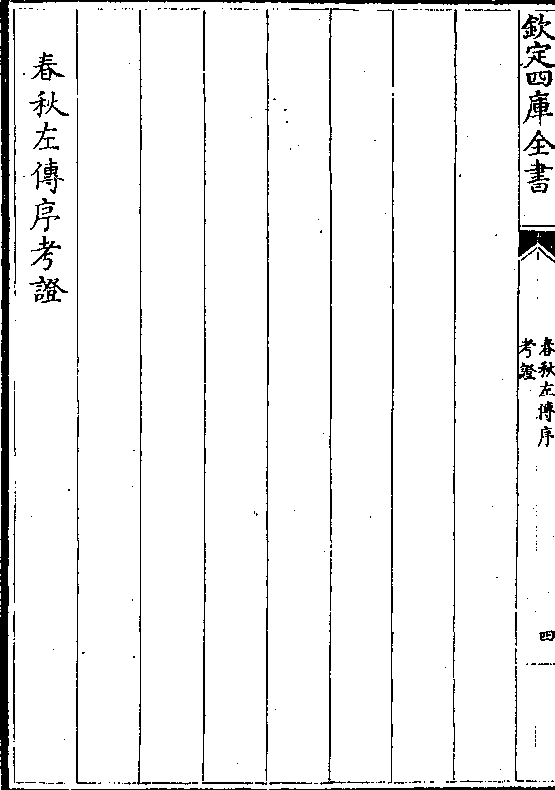 欽定四庫全書
春秋左傳序
考證
四
春秋左傳序考證